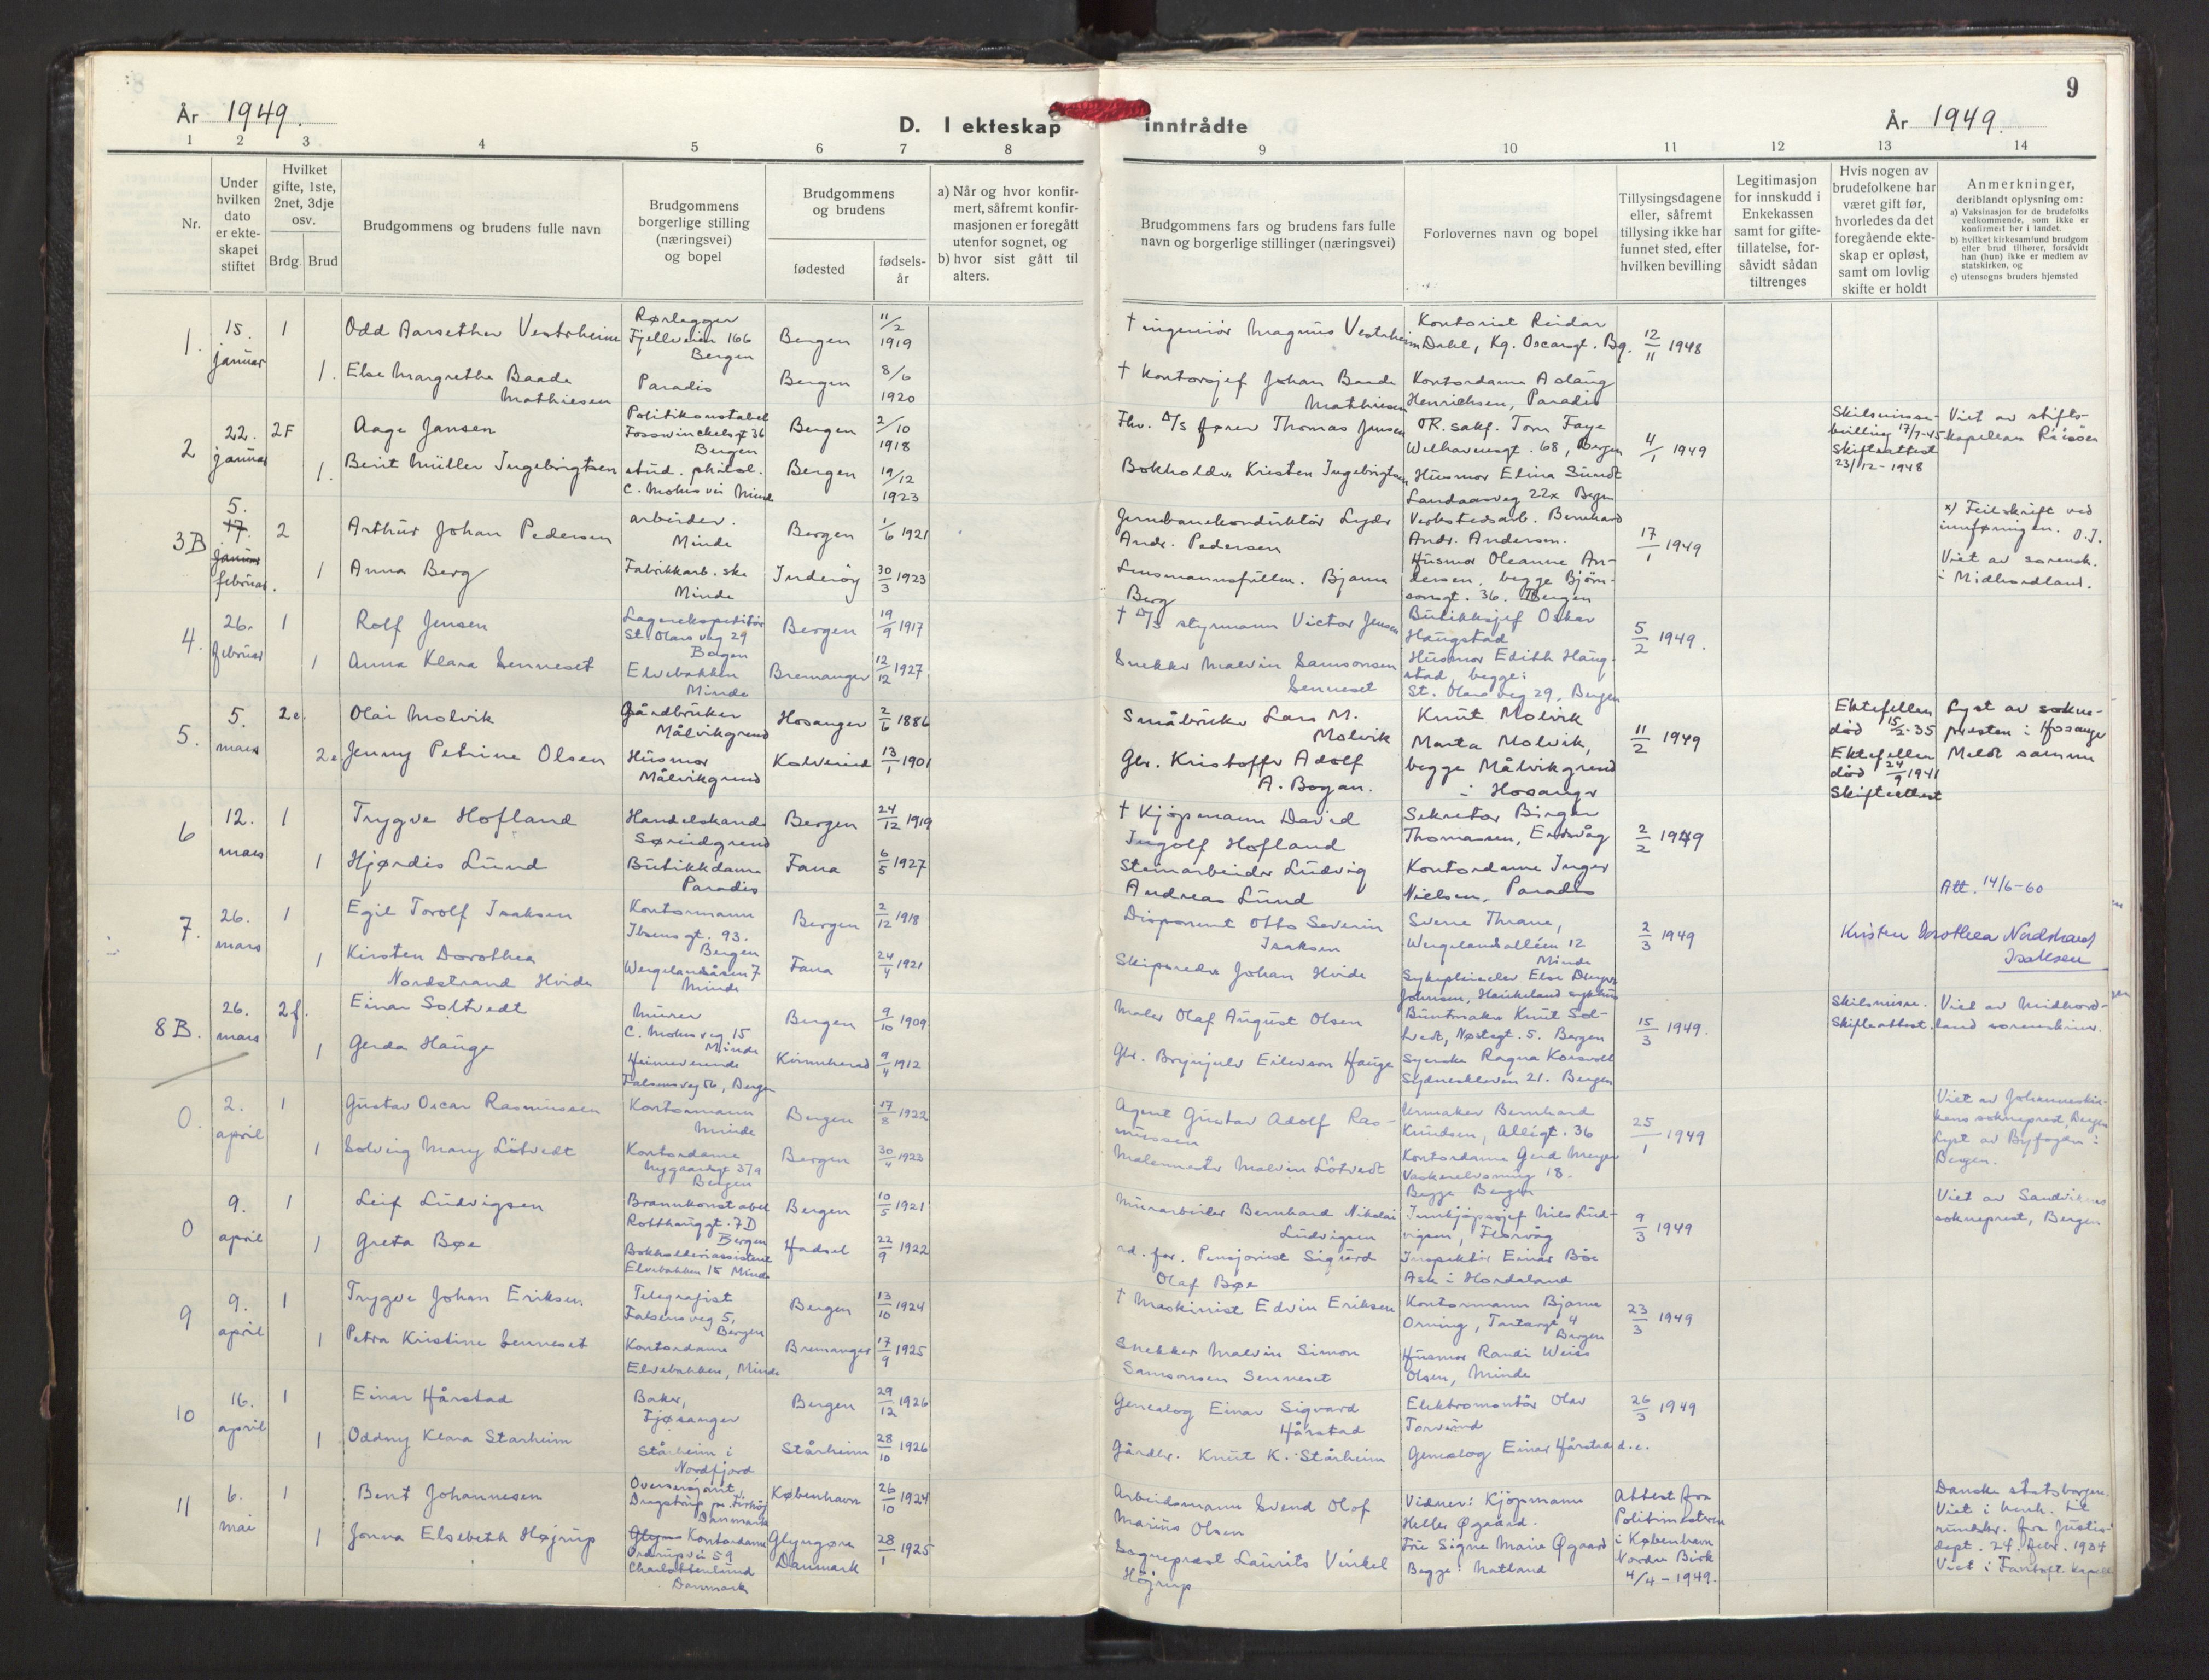 9
År 1949.
D. I ekteskap inntrådte
År 1949.
1 2 3 4 5 6 7 8 9 10 11 12 13 14
Nr.
Under hvilken dato er ekte-skapet stiftet
Hvilket gifte, 1ste, 2net, 3dje osv.
Brdg. Brud
Brudgommens og brudens fulle navn
Brudgommens borgerlige stilling (næringsvei) og bopel
Brudgommens og brudens
fødested
fødsels-år
a) Når og hvor konfir-mert, såfremt konfir-masjonen er foregått utenfor sognet, og
b) hvor sist gått til alters.
Brudgommens fars og brudens fars fulle navn og borgerlige stillinger (næringsvei)
Forlovernes navn og bopel
Tillysingsdagene eller, såfremt tillysing ikke har funnet sted, efter hvilken bevilling
Legitimasjon for innskudd i Enkekassen samt for gifte-tillatelse, for-såvidt sådan tiltrenges
Hvis nogen av brudefolkene har været gift før, hvorledes da det foregående ekte-skap er opløst, samt om lovlig skifte er holdt
Anmerkninger, deriblandt oplysning om:
a) Vaksinasjon for de brudefolks vedkommende, som ikke er konfirmert her i landet.
b) hvilket kirkesamfund brudgom eller brud tilhører, forsåvidt han (hun) ikke er medlem av statskirken, og
c) utensogns bruders hjemsted
1. 15. januar 1 Odd Aarsether Vestrheim Rørlegger Fjellveien 166 Bergen Bergen 11/2 1919 † ingeniör Magnus Vestrheim Kontorist Reidar Dahl, Kg. Oscarsgt. Bg. 12/11 1948
1. Else Margrethe Baade Mathiesen Paradis Bergen 8/6 1920 † Kontorsjef Johan Baade Mathiesen Kontordame Aslaug Henrichsen, Paradis
2 22. januar 2F Aage Jansen Politikonstabel Fosswinckelsgt 36 Bergen Bergen 2/10 1918 Fhv. D/S fører Thomas Jansen OR. sakf. Tom Faye Welhavensgt. 68, Bergen 4/1 1949 Skilsmisse-bevilling 17/7-45 Skifteattest 23/12-1948 Viet av stifts-kapellan Riisöen
1. Berit Müller Ingebrigtsen stud. philol. C. Mohns vei Minde Bergen 19/12 1923 Bokholder Kristen Ingebrigtsen Husmor Elina Sundt Landaasveg 22x Bergen
3B 5. 17. januar februar. 2 Arthur Johan Pedersen arbeider. Minde Bergen 1/6 1921 Jernbanekonduktör Lyder Andr. Pedersen Verkstedsarb. Bernhard Andr. Andersen. 17/1 1949 x) Feilskrift ved innføringen. O.J.
1 Anna Berg Fabrikkarb.ske Minde Inderöy 30/3 1923 Lensmannsfullm. Bjarne Berg Husmor Oleanne An-dersen, begge Bjørn-sonsgt. 36. Bergen Viet av sorensk. i Midhordland.
4. 26. februar 1 Rolf Jensen Lagerekspeditör St. Olavs veg 29 Bergen Bergen 19/9 1917 † D/S styrmann Victor Jensen Butikksjef Oskar Haugstad 5/2 1949.
1 Anna Klara Senneset Elvebakken Minde Bremanger 12/12 1927 Snekker Malvin Samsonsen Senneset Husmor Edith Haug-stad, begge: St. Olavs veg 29, Bergen
5. 5. mars 2e. Olai Molvik Gårdbruker Målvikgrend Hosanger 2/6 1886 Småbruker Lars M. Molvik Knut Molvik 11/2 1949 Ektefellen död 15/2-35 Lyst av sokne-presten i Hosanger
2e Jenny Petrine Olsen Husmor Målvikgrend Kolvereid 13/1 1901 Gbr. Kristoffer Adolf A. Bogan. Marta Molvik, begge Målvikgrend i Hosanger Ektefellen död 24/9 1941 Skifteattest Meldt samme
6 12. mars 1 Trygve Hofland Handelskand. Søreidgrend Bergen 24/12 1919 † Kjöpmann David Ingolf Hofland Sekretær Birger Thomassen, Eidsvåg 2/2 1949
1 Hjørdis Lund Butikkdame Paradis Fana 6/5 1927 Steinarbeider Ludvig Andreas Lund Kontordame Inger Nielsen, Paradis
7. 26. mars 1 Egil Torolf Isaksen Kontormann Ibsens gt. 93. Bergen Bergen 2/12 1918 Disponent Otto Severin Isaksen Sverre Thrane, Wergelandsalléen 12 Minde 2/3 1949 Att. 14/6-60
1 Kirsten Dorothea Nordstrand Hvide Wergelandsåsen 7 Minde Fana 24/4 1921 Skipsreder Johan Hvide Sykepleierske Else Johnsen, Haukeland sykehus Kirsten Dorothea Nordstrand Isaksen
8B. 26. mars 2f. Einar Soltvedt Murer C. Mohns veg 15 Minde Bergen 9/10 1909 Maler Olaf August Olsen Buntmaker Knut Sol-tvedt, Nøstegt. 5. Bergen 15/3 1949. Skilsmisse. Skifteattest. Viet av Midhord-land sorenskriver.
1 Gerda Hauge Heimeværende Falsensveg 56, Bergen Kvinnherad 9/4 1912 Gbr. Brynjulv Eilevson Hauge Syerske Ragna Korsvoll Sydneskleven 21. Bergen
0. 2. april 1 Gustav Oscar Rasmussen Kontormann Minde Bergen 17/8 1922 Agent Gustav Adolf Ras-mussen Urmaker Bernhard Knudsen, Allégt. 36 25/1 1949 Viet av Johanneskir-kens sokneprest, Bergen Lyst av Byfogden i Bergen.
1 Solveig Mary Lötvedt Kontordame Nygaardsgt 37a Bergen Bergen 30/4 1923 Malermester Malvin Lötvedt Kontordame Gerd Meyer 18. Begge Bergen
0 9. april 1 Leif Ludvigsen Brannkonstabel Rotthauggt. 7D Bergen Bergen 10/5 1921 Murarbeider Bernhard Nikolai Ludvigsen Innkjøpssjef Nils Lud-vigsen, Florvåg 9/3 1949 Viet av Sandvikens sokneprest, Bergen
1 Greta Bøe Bokholderiassistent Elvebakken 15 Minde Hadsel 22/9 1922 ad. far. Pensjonist Sigurd Olaf Bøe Inspektör Einar Böe Ask i Hordaland
9 9. april 1 Trygve Johan Eriksen. Telegrafist Falsens veg 5, Bergen Bergen 13/10 1924 † Maskinist Edvin Eriksen Kontormann Bjarne Orning, 4 Bergen 23/3 1949
1 Petra Kristine Senneset Kontordame Elvebakken, Minde Bremanger 17/9 1925 Snekker Malvin Simon Samsonsen Senneset Husmor Randi Weiss Olsen, Minde
10 16. april 1 Einar Hårstad Baker, Fjøsanger Bergen 29/12 1926 Genealog Einar Sigvard Hårstad Elektromontör Olav Torvund 26/3 1949
1 Oddny Klara Starheim Stårheim i Nordfjord Stårheim 28/10 1926 Gårdbr. Knut K. Stårheim Genealog Einar Hårstad d.e.
11 6. mai 1 Bent Johannesen Oversersjant, Dragstrup pr. Danmark København 26/10 1924 Arbeidsmann Svend Olof Marius Olsen Vidner: Kjöpmann Heller Øgaard. Attest fra Politimestren i København Nordre Birk 4/4-1949. Danske statsborgere. Viet i henh. til rundskr. fra Justis-dept. 24. febr. 1934 Viet i Fantoft kapell
1 Jonna Elsebeth Højrup Glyn Kontordame Ordrupvei 59 Charlottenlund Danmark Glyngøre Danmark 28/1 1925 Sogneprest Laurits Vinkel Höjrup Fru Signe Marie Øgaard Begge: Natland